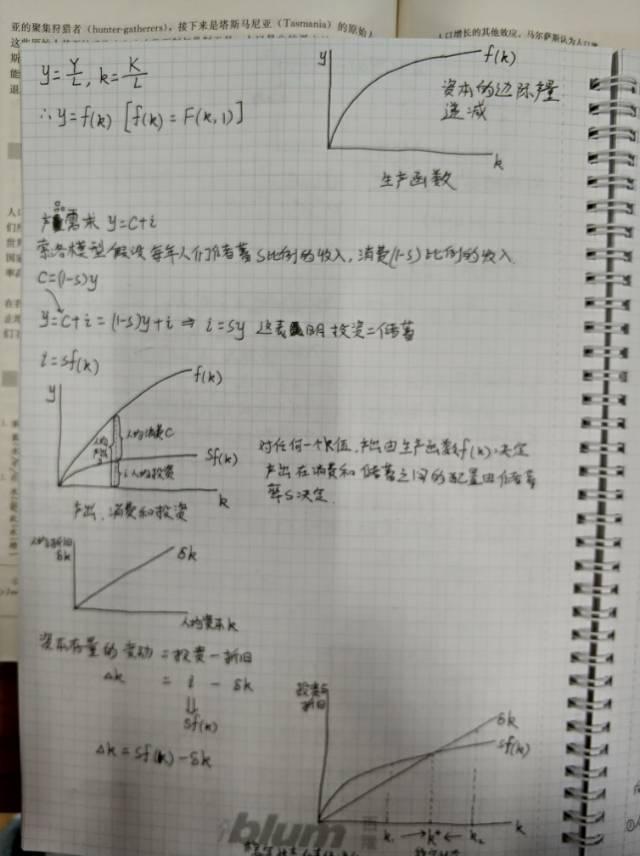 亚的聚集狩猎者（hunter-gatherers），接下来是塔斯马尼亚（Tasmania）的原始人
人口增长的其他效应，马尔萨斯认为人口
y=Y/L, k=K/L
∴ y=f(k) [f(k)=F(k,1)]
y
f(k)
资本的边际产量
递减
k
生产函数
产品需求 y=c+i
索洛模型假设每年人们储蓄S比例的收入，消费(1-s)比例的收入
C=(1-s)y
y=c+i=(1-s)y+i ⇒ i=sy 这表明投资=储蓄
i=sf(k)
y
f(k)
人均消费C
人均产出
sf(k)
i 人均投资
k
产出、消费和投资
对任何一个k值，产出由生产函数f(k)决定
产出在消费和储蓄之间的配置由储蓄
率S决定.
人均折旧
δk
δk
人均资本k
资本存量的变动=投资-折旧
Δk = i - δk
⇓
sf(k)
Δk=sf(k)-δk
投资与
折旧
δk
sf(k)
k₁ → k* ← k₂ k
blum